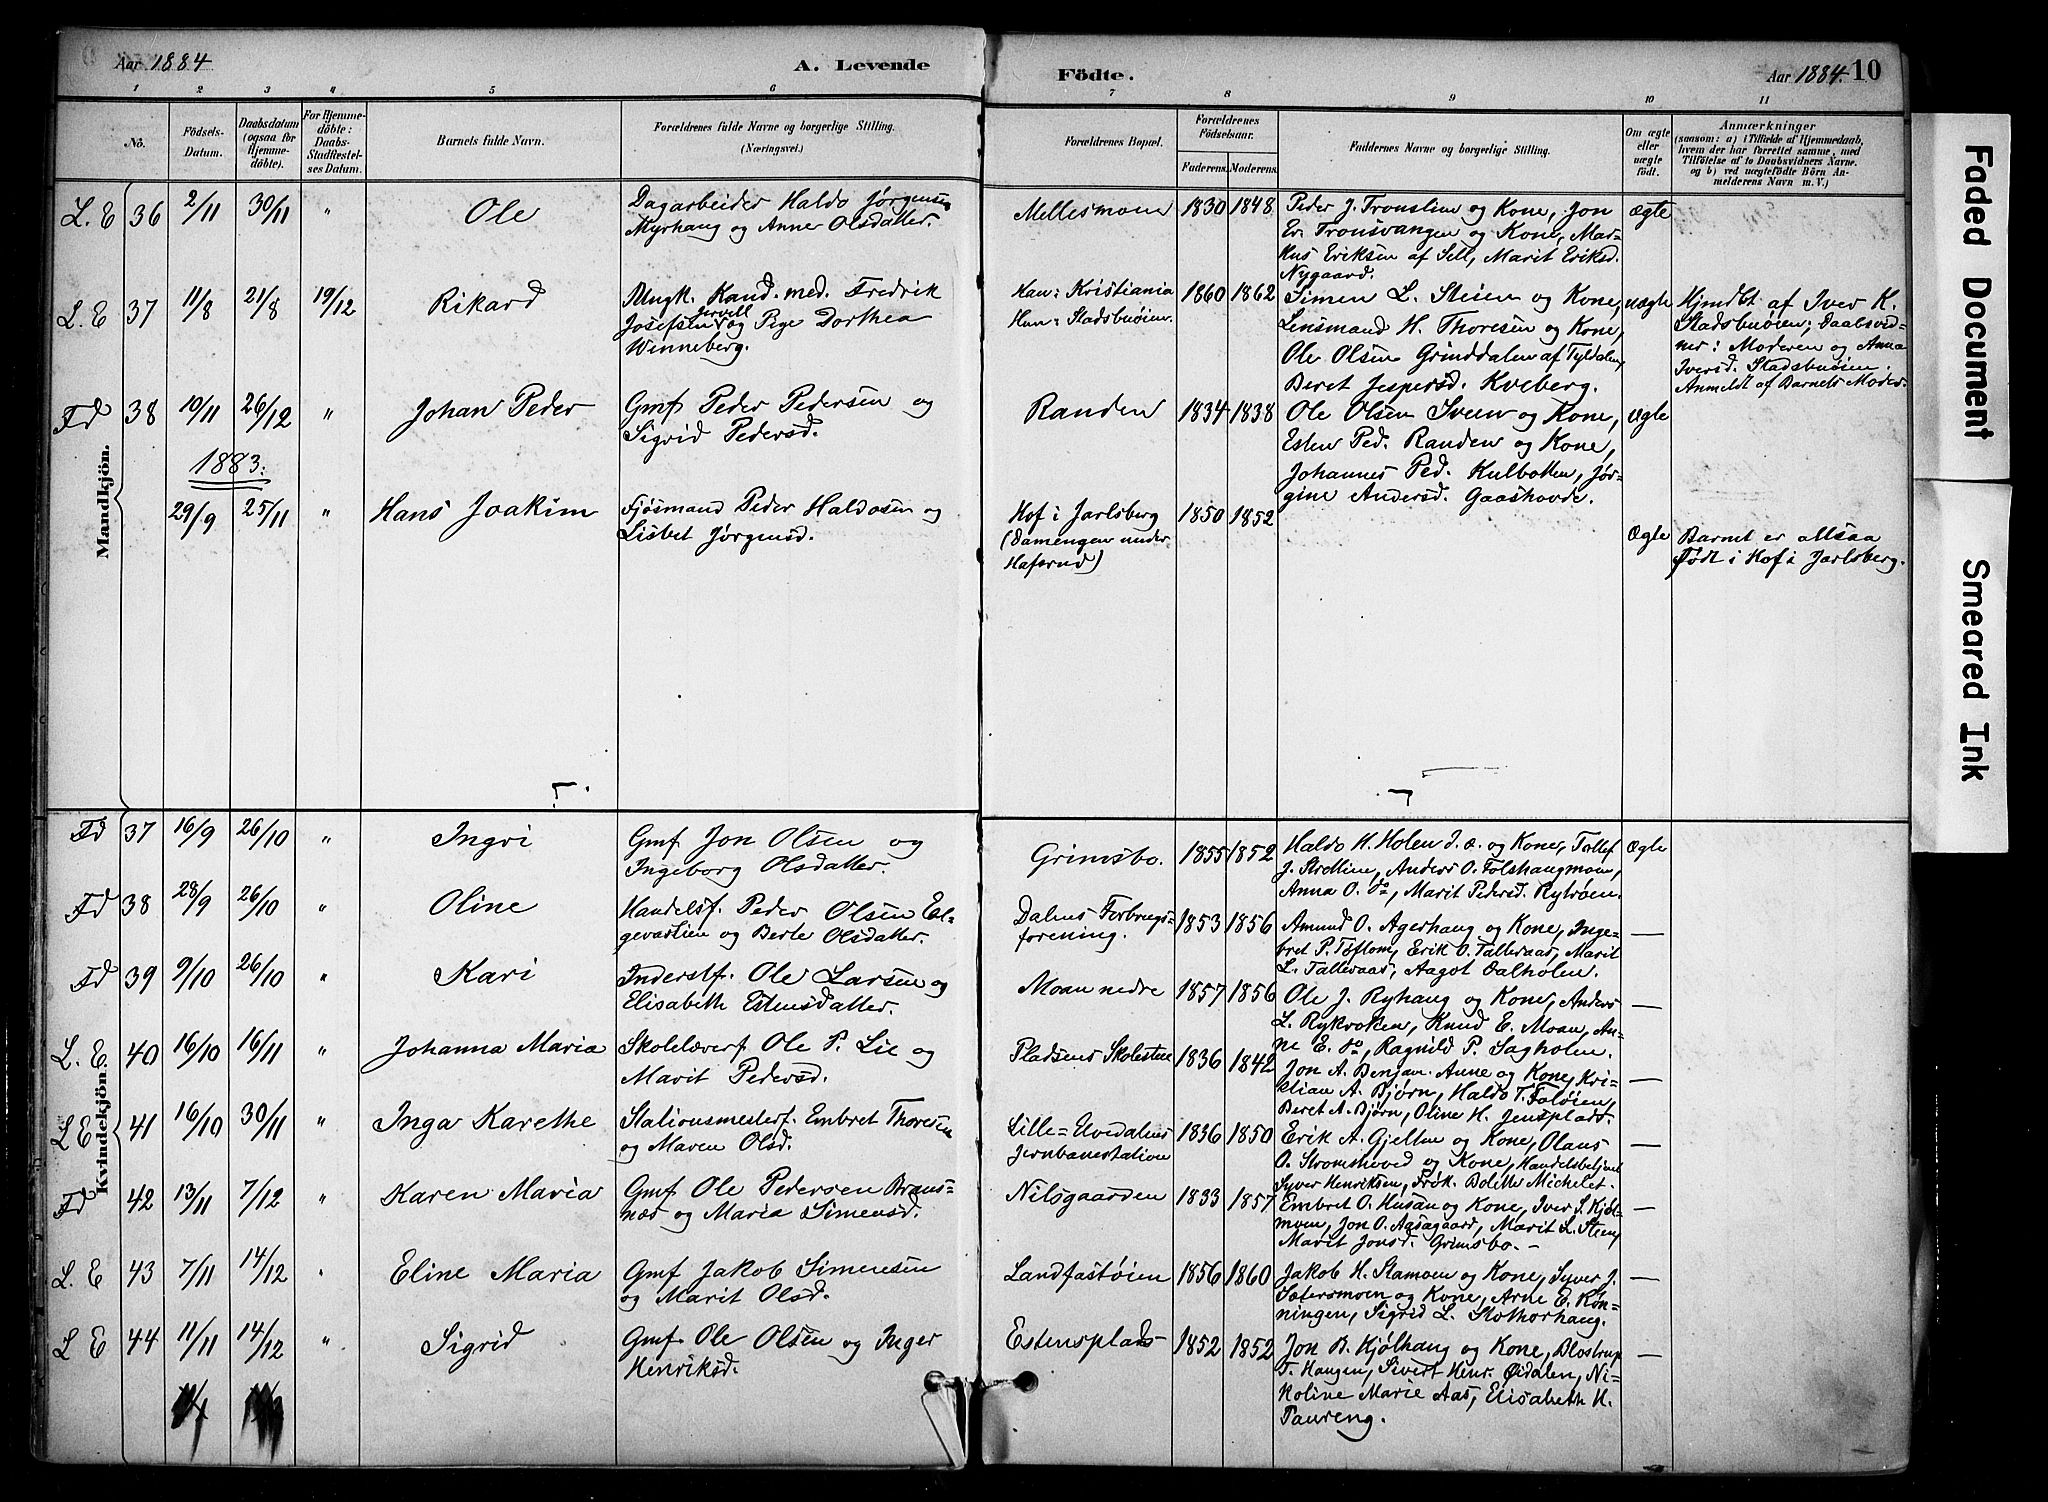 Aar 1884
A. Levende
Födte.
Aar 1884. 10
1 2 3 4 5 6 7 8 9 10 11
No.
Födsels-
Datum.
Daabsdatum
(ogsaa for
Hjemme-
döbte).
For Hjemme-
döbte:
Daabs-
Stadfæstel-
ses Datum.
Barnets fulde Navn.
Forældrenes fulde Navne og borgerlige Stilling.
(Næringsvei.)
Forældrenes Bopæl.
Forældrenes
Födselsaar.
Faderens. Moderens.
Faddernes Navne og borgerlige Stilling.
Om ægte
eller
uægte
födt.
Anmærkninger
(saasom: a) i Tilfælde af Hjemmedaab,
hvem der har forrettet samme, med
Tilföielse af to Daabsvidners Navne.
og b) ved uægtefödte Börn An-
melderens Navn m. V.)
Mandkjön.
L. E 36 2/11 30/11 " Ole
Dagarbeider Haldo Jørgensen
Myrhaug og Anne Olsdatter.
Mellesmoen 1830 1848
Peder J. Tronslien og Kone, Jon
Er. Tronsvangen og Kone, Mar-
kus Eriksen af Sell, Marit Eriksd.
Nygaard.
Ægte
L. E 37 11/8 21/8 19/12 Rikard
Ungk. Kand. med. Fredrik
Josefsen Jervell og Pige Dorthea
Winneberg.
Han: Kristiania
Hun: Stadsbuøien.
1860 1862
Simen L. Steien og Kone,
Lensmand H. Thoresen og Kone,
Ole Olsen Grinddalen af Tyldalen,
Beret Jespersd. Kveberg.
uægte
Hjmdbt af Iver K.
Stadsbuøien; Daabsvid-
ner: Moderen og Anna
Iversd. Stadsbuøien.
Anmeldt af Barnets Moder.
Fd 38 10/11 26/12 " Johan Peder
Gmf Peder Pedersen og
Sigrid Pedersd.
Randen 1834 1838
Ole Olsen Sveen og Kone,
Esten Ped. Randen og Kone,
Johannes Ped. Kulbotten, Jør-
gine Andersd. Gaashovde.
Ægte
1883:
29/9 25/11 " Hans Joakim
Fjøsmand Peder Haldosen og
Lisbet Jørgensd.
Hof i Jarlsberg
(Damengen under
Hafsrud)
1850 1852
Ægte
Barnet er altsaa
født i Hof i Jarlsberg.
Kvindekjön.
Fd 37 16/9 26/10 " Ingri
Gmf Jon Olsen og
Ingeborg Olsdatter.
Grimsbo. 1855 1852
Haldo H. Holen d. æ. og Kone, Tollef
J. Strølien, Anders O. Folshaugmoen,
Anna O. do, Marit Pedersd. Rytrøen.
Ægte
Fd 38 28/9 26/10 " Oline
Handelsf. Peder Olsen El-
gevartien og Berte Olsdatter.
Dalens Forbrugs-
forening.
1853 1856
Amund O. Agerhaug og Kone, Inge-
bret P. Tøftom, Erik O. Tallevaas, Marit
L. Tallevaas, Aagot Dalholen.
—
Fd 39 9/10 26/10 " Kari
Inderstf. Ole Larsen og
Elisabeth Estensdatter.
Moan nedre 1857 1856
Ole J. Ryhaug og Kone, Anders
L. Rykroken, Knud E. Moan, An-
ne E. do, Ragnild P. Sagholen.
—
L. E. 40 16/10 16/11 " Johanna Maria
Skolelærerf Ole P. Lie og
Marit Pedersd.
Pladsens Skolestue 1836 1842
Jon A. Benjam. Anne og Kone, Kri-
stian A. Bjørn, Haldo T. Faløien,
Beret A. Bjørn, Oline H. Jensplads.
—
L E 41 16/10 30/11 " Inga Karethe
Stationsmesterf. Embret Thoresen
og Maren Olsd.
Lille-Elvedalens
Jernbanestation
1836 1850
Erik A. Gjelten og Kone, Olaus
O. Stromshoved og Kone, Handelsbetjent
Syver Henriksen, Frøk. Bolette Michelet.
—
Fd 42 13/11 7/12 " Karen Maria
Gmf Ole Pedersen Brans-
næs og Maria Simensd.
Nilsgaarden 1833 1857
Embret O. Husan og Kone, Iver S. Kjøl-
moen, Jon O. Aasagaard, Marit L. Steen,
Marit Jonsd. Grimsbo. –
—
L. E 43 7/11 14/12 " Eline Maria
Gmf Jakob Simensen
og Marit Olsd.
Landfastøien 1856 1860
Jakob H. Stamoen og Kone, Syver J.
Sætersmoen og Kone, Arne E. Røn-
ningen, Sigrid L. Slothorhaug.
—
L E 44 11/11 14/12 " Sigrid
Gmf. Ole Olsen og Inger
Henriksd.
Estensplads 1852 1852
Jon B. Kjølhaug og Kone, Blostrup
T. Haugen, Sivert Henr. Øidalen, Ni-
koline Marie Aas, Elisabeth H.
Paureng.
—
Faded Document
Smeared Ink